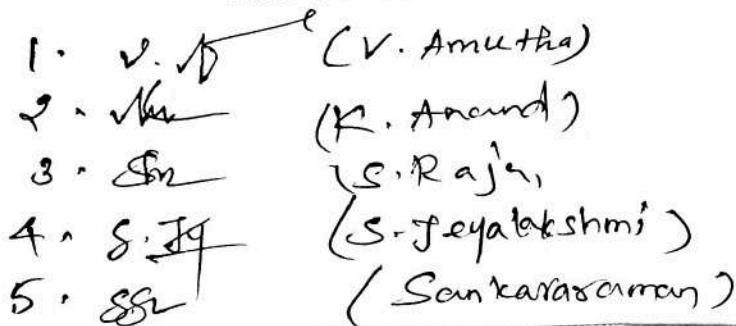 1. (V. Amutha)
2. (K. Anand)
3. (S. Raja,
4. (S. Jeyalakshmi)
5. (Sankararaman)